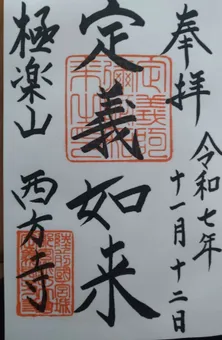 奉拝
令和七年
十一月十二日
定義如来
極楽山 西方寺